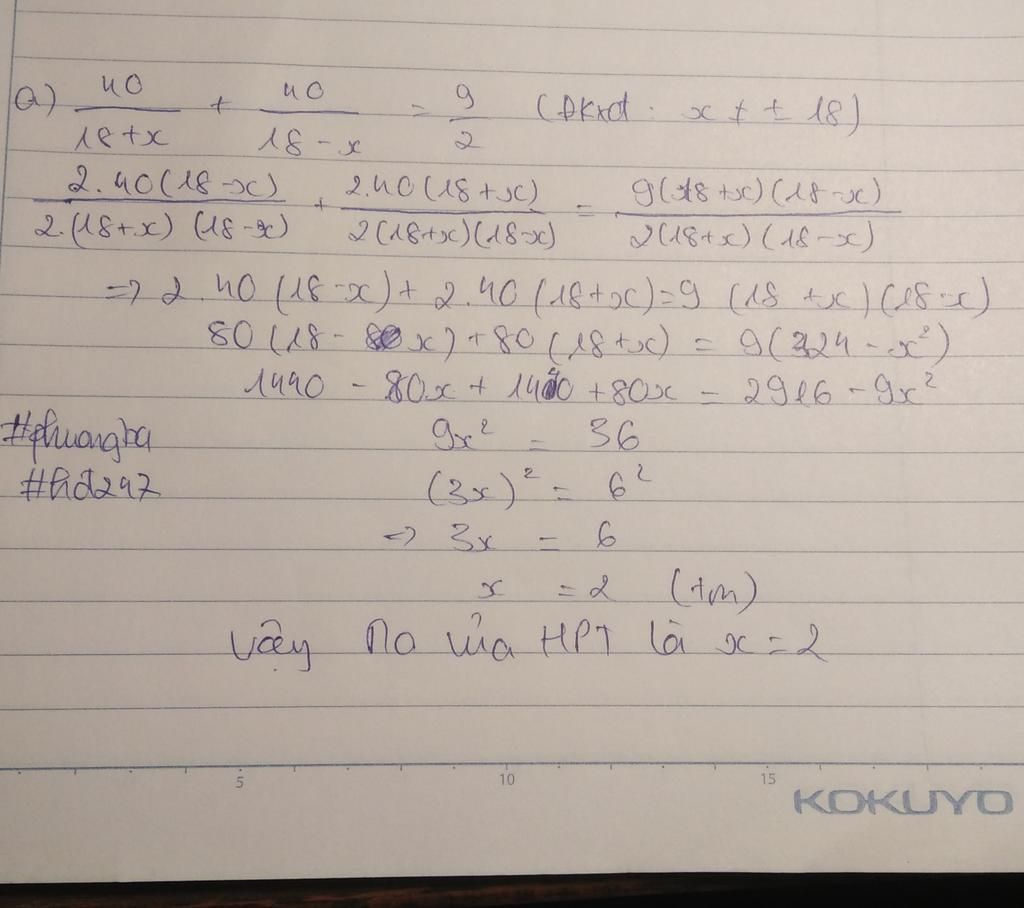 a) 40/(18+x) + 40/(18-x) = 9/2 (Đkxđ: x ≠ ± 18)
2.40(18-x)/2.(18+x)(18-x) + 2.40(18+x)/2(18+x)(18-x) = 9(18+x)(18-x)/2(18+x)(18-x)
=> 2.40(18-x) + 2.40(18+x) = 9(18+x)(18-x)
80(18-x) + 80(18+x) = 9(324-x²)
1440 - 80x + 1440 + 80x = 2916 - 9x²
#phuongha 9x² = 36
#hd247 (3x)² = 6²
=> 3x = 6
x = 2 (tm)
Vậy no của HPT là x = 2
5 10 15
KOKUYO